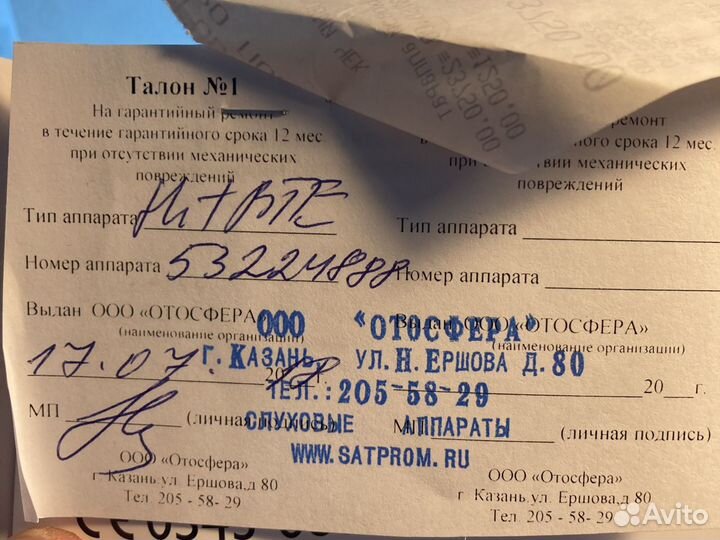 Талон №1
На гарантийный ремонт
в течение гарантийного срока 12 мес.
при отсутствии механических
повреждений
Тип аппарата Hit BTE
Номер аппарата 532241888
Выдан ООО «ОТОСФЕРА»
(наименование организации)
17.07. 20 г.
МП (личная подпись)
ООО «Отосфера»
г. Казань, ул. Ершова, д 80
Тел. 205 - 58- 29
ремонт
гарантийного срока 12 мес.
при отсутствии механических
повреждений
Тип аппарата
Номер аппарата
Выдан ООО «ОТОСФЕРА»
(наименование организации)
20 г.
МП (личная подпись)
ООО «Отосфера»
г Казань, ул. Ершова, д 80
Тел. 205 - 58- 29
ООО "ОТОСФЕРА"
Г. КАЗАНЬ УЛ. Н. ЕРШОВА Д. 80
ТЕЛ.: 205-58-29
СЛУХОВЫЕ АППАРАТЫ
WWW.SATPROM.RU
ЧЕК
аппарат
=1520.00
=53520.00
CE 0543
Avito